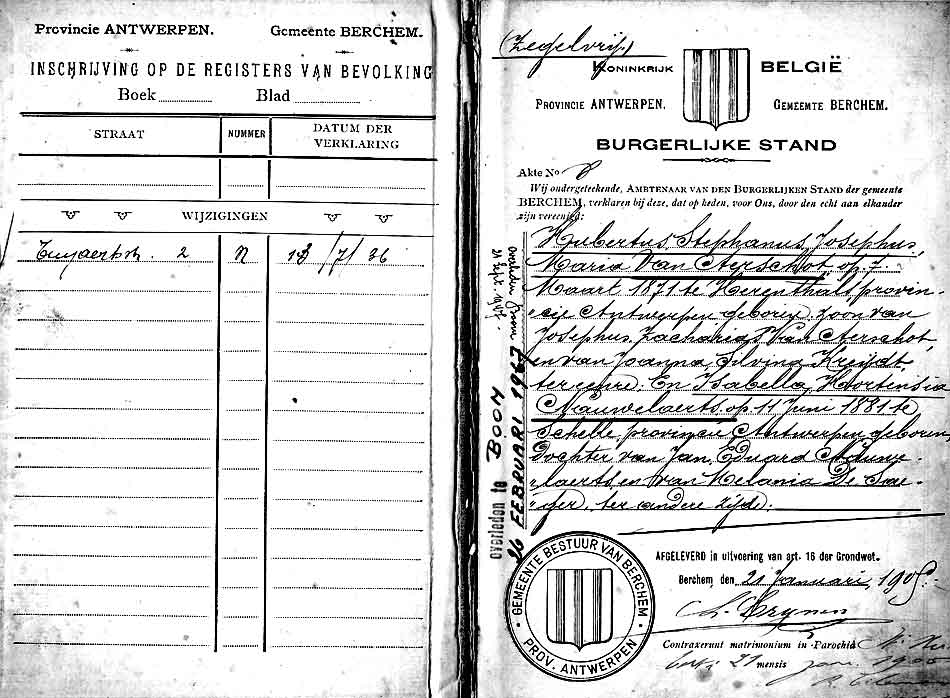 Provincie ANTWERPEN. Gemeente BERCHEM.
INSCHRIJVING OP DE REGISTERS VAN BEVOLKING
Boek Blad
STRAAT NUMMER DATUM DER VERKLARING
WIJZIGINGEN
2 N 13/7/36
(Zegelvrij)
KONINKRIJK BELGIË
PROVINCIE ANTWERPEN. GEMEENTE BERCHEM.
BURGERLIJKE STAND
Akte No 8
Wij ondergeteekende, AMBTENAAR VAN DEN BURGERLIJKEN STAND der gemeente
BERCHEM, verklaren bij deze, dat op heden, voor Ons, door den echt aan elkander
zijn vereenigd:
Hubertus Stephanus Josephus
Maria Van Aerschot, op 7
Maart 1871 te Herenthals provin-
cie Antwerpen geboren, zoon van
Josephus Zacharias Van Aerschot
en van Joanna Silvina Kreydt
ter eenre. En Isabella Hortensia
Nauwelaerts, op 14 Juni 1881 te
Schelle, provincie Antwerpen geboren
Dochter van Jan Eduard Nauwe-
laerts, en van Melania De Sae-
ger, ter andere zijde.
overleden
Overleden te BOOM
26 FEBRUARI 1967
GEMEENTE BESTUUR VAN BERCHEM
PROV. ANTWERPEN
AFGELEVERD in uitvoering van art. 16 der Grondwet.
Berchem den 21 Januari 190
Contraxerunt matrimonium in Parochia
21 mensis